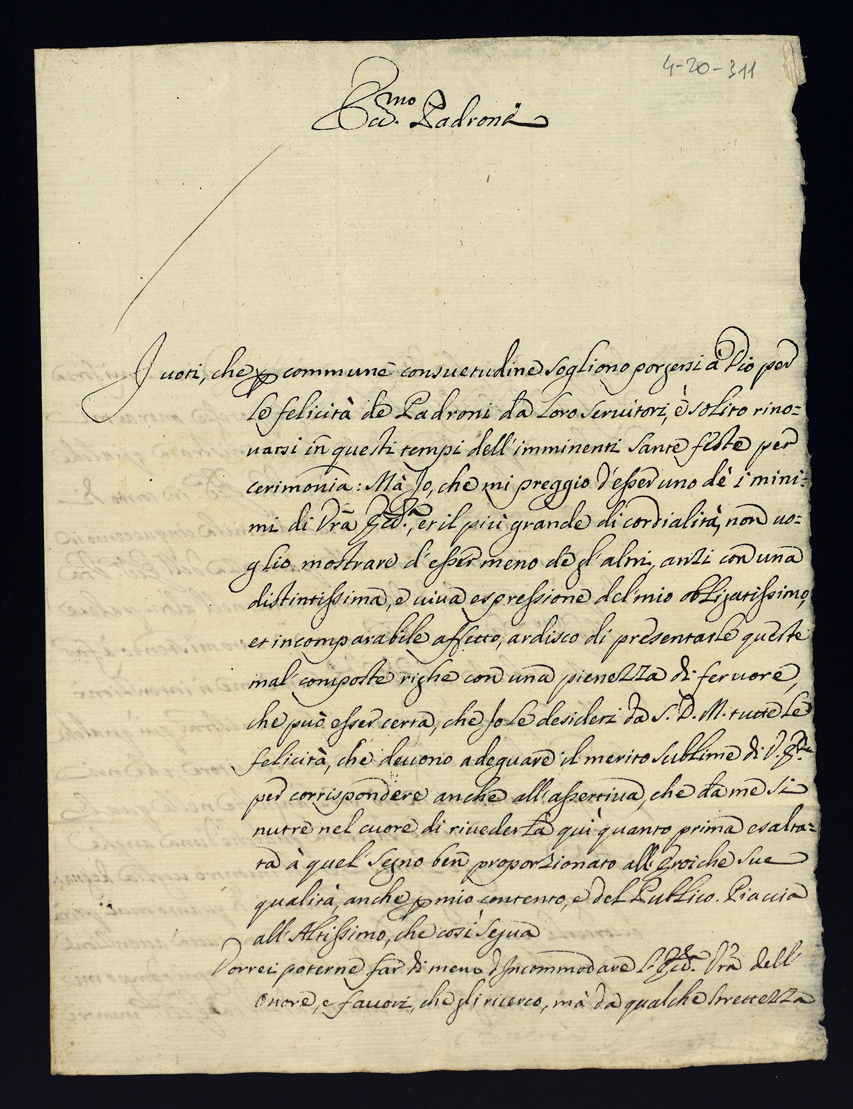 4-20-311
Ecc.mo Padrone
I uoti, che p commune consuetudine sogliono porgersi à Dio per
le felicità de Padroni da loro seruitori, è solito rino=
uarsi in questi tempi dell'imminenti sante feste per
cerimonia: Mà Io, che mi preggio d'esser uno de i mini=
mi di Vrã Ecc.za, et il più grande di cordialità, non uo=
glio mostrare d'esser meno de gl'altri, anzi con una
distintissima, e uiua espressione del mio obligatissimo,
et incomparabile affetto, ardisco di presentarle queste
mal composte righe con una pienezza di feruore,
che può esser certa, che Io le desideri da S. D. M. tutte le
felicità, che deuono adeguare il merito sublime di V. Ecc.za
per corrispondere anche all'assertiua, che da me si
nutre nel cuore di riuederla quì quanto prima esalta=
ta à quel segno ben proporzionato all'Eroiche sue
qualità, anche p mio contento, e del Publico. Piaccia
all'Altissimo, che così segua
Vorrei poterne far di meno d'incommodare l'Ecc.za Vrã dell'
onore, e fauori, che gli ricerco, mà da qualche strettezza